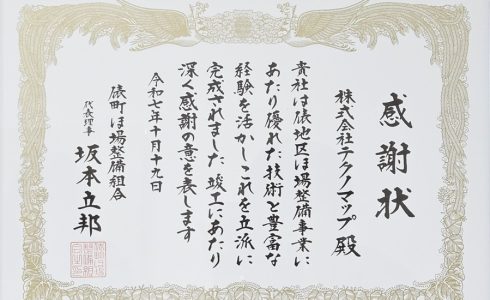 感謝状
株式会社テクノマップ 殿
貴社は俵地区ほ場整備事業に
あたり優れた技術と豊富な
経験を活かしこれを立派に
完成されました 竣工にあたり
深く感謝の意を表します
令和七年十月十九日
俵町ほ場整備組合
代表理事 坂本立邦